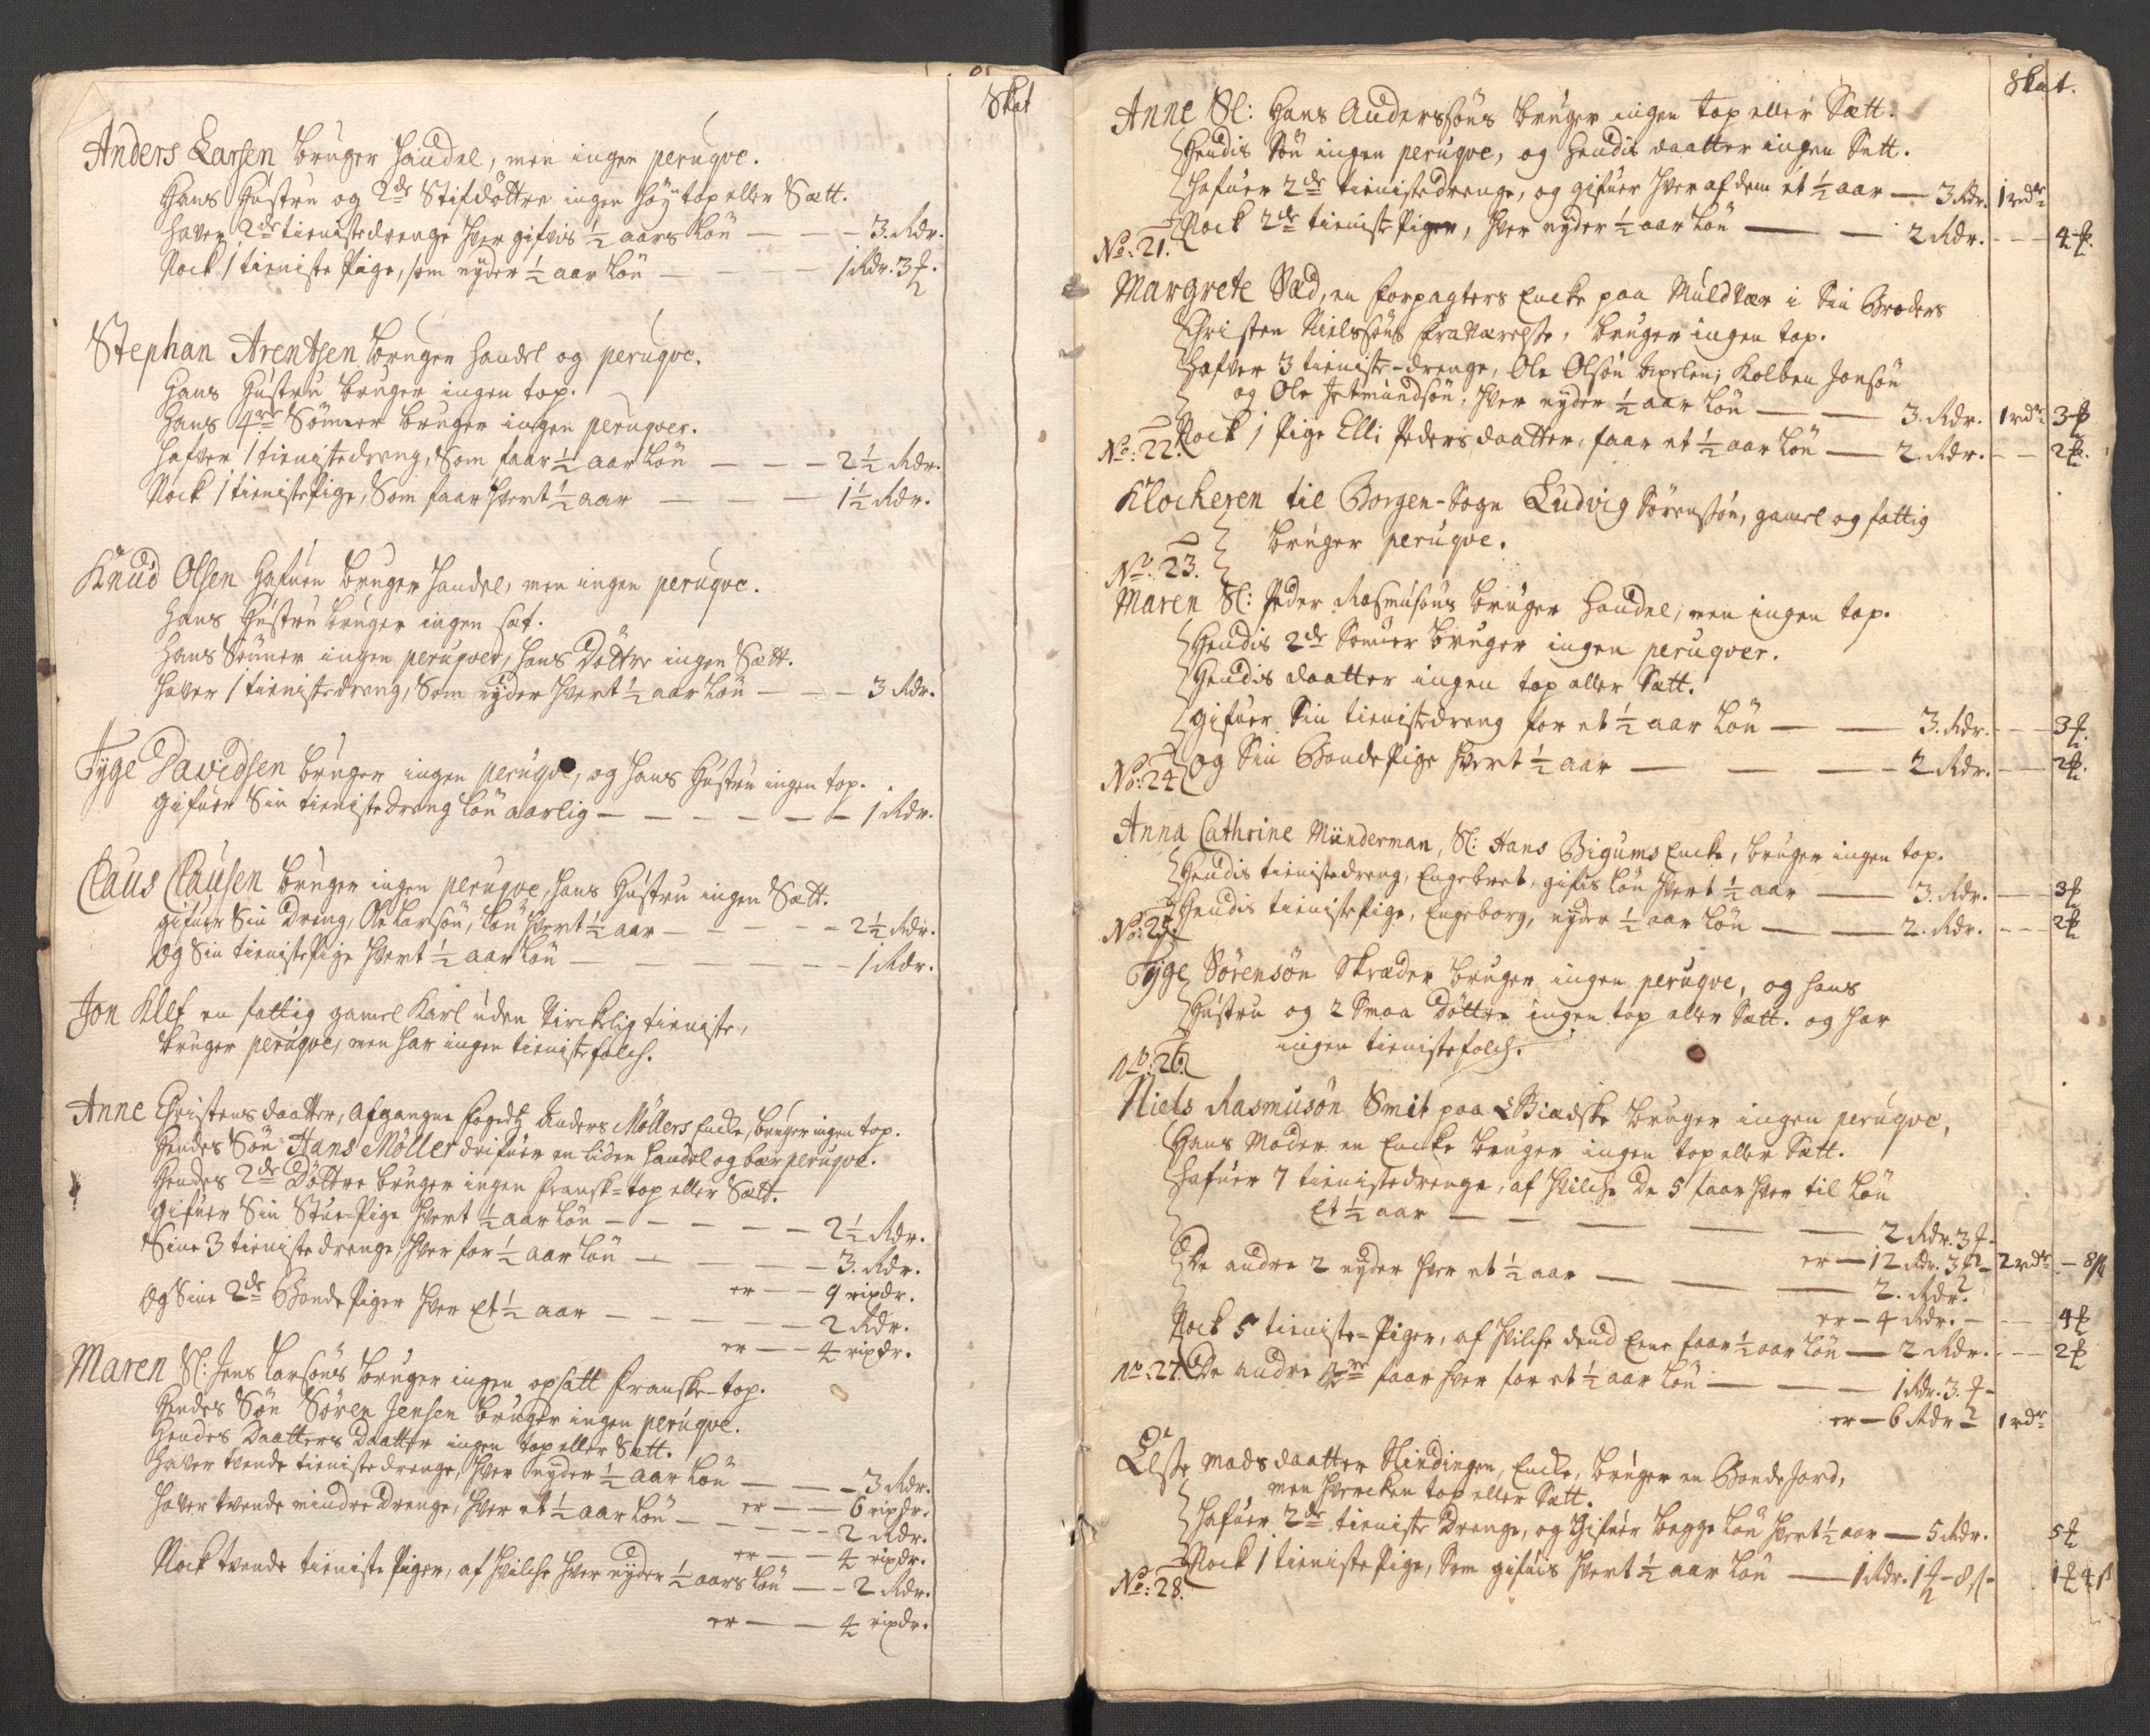 Skat
Anders Larsen bruger handel, men ingen peruqve.
Hans Hustru og 2de Stifdöttre ingen höy top eller Sætt.
haver 2de tienistedrenge hver gifvis ½ aars Lön — — — 3. Rdr.
Nock 1 tieniste Pige, som nyder ½ aar Lön — — — — 1 Rdr. 3
Stephan Arentsen bruger handel og peruqve.
Hans Hustru bruger ingen top.
Hans 4re Sönner bruger ingen peruqver.
Hafver 1 tienistedreng, Som faar ½ aar Lön — — — 2½ Rdr.
Nock 1 tienistePige, Som faar hvert ½ aar — — — 1½ Rdr.
Knud Olsen Hafuen bruger handel, men ingen peruqve.
Hans Hustru bruger ingen sat.
Hans Sönner ingen peruqver, hans Döttre ingen Sætt.
haver 1 tienistedreng, Som nyder hvert ½ aar Lön — — — 3 Rdr.
Tyge Davidsen bruger ingen peruqve, og hans Hustru ingen top.
gifuer Sin tienistedreng Lön aarlig — — — — — — 1 Rdr.
Claus Clausen bruger ingen peruqve, hans Hustru ingen Sætt.
gifuer Sin dreng, Ole Larsön, Lön hvert ½ aar — — — — 2½ Rdr.
Og Sin tienistePige hvert ½ aar Lön — — — — — 1 Rdr.
Jon Klef en fattig gamel Karl uden Virckelig tieniste,
bruger peruqve, men har ingen tienistefolch.
Anne Christensdaatter, afgangne fogedtz Anders Möllers Encke, bruger ingen top.
Hendes Sön Hans Möller drifuer en liden handel og bær peruqve.
Hendes 2de Döttre bruger ingen fransk-top eller Sætt.
gifuer Sin Stue-Pige hvert ½ aar Lön — — — — 2½ Rdr.
Sine 3 tienistedrenge, hver for ½ aar Lön — — — — 3. Rdr.
er — — 9 rixdr.
Og Sine 2de BondePiger hver Et ½ aar — — — — — 2 Rdr.
er — — 4 rixdr.
Maren Sl: Jens Larsöns bruger ingen opsatt franske-top.
Hendes Sön Sören Jensen bruger ingen peruqve.
Hendes Daatters Daatter ingen top eller Sætt.
Haver tvende tienistedrenge, hver nyder ½ aar Lön — — — 3 Rdr.
er — — 6 rixdr.
Haver tvende mindre drenge, hver et ½ aar Lön — — — — 2 Rdr.
er — — 4 rixdr.
Nock tvende tieniste Piger, af hvilche hver nyder ½ aars Lön — — 2 Rdr.
er — — 4 rixdr.
Skat.
Anne Sl: Hans Anderssöns bruger ingen top eller Sætt.
Hendis Sön ingen peruqve, og hendis daatter ingen Sætt.
Hafuer 2de tienistedrenge, og gifuer hver af dem et ½ aar — 3 Rdr. 1 rdr
Nock 2de tieniste Piger, hver nyder ½ aar Lön — — 2 Rdr. — — 4
No: 21.
Margrete Sæd, en forpagters Encke paa Muldvær i Sin Broders
Christen Nielssöns fraværelse, bruger ingen top.
Hafver 3 tieniste-drenge, Ole Olsön, Kolben Jonsön
og Ole Jetmundsön, hver nyder ½ aar Lön — — 3. Rdr. 1 rdr 3
Nock 1 Pige Elli Pedersdaatter, faar et ½ aar Lön — 2. Rdr. — — 2
No: 22.
Klockeren til Borgen-Sogn Ludvig Sörensön, gamel og fattig
bruger peruqve.
No: 23.
Maren Sl: Peder Rasmusöns bruger handel, men ingen top.
Hendis 2de Sönner bruger ingen peruqver.
Hendis daatter ingen top eller Sætt.
gifuer Sin tienistedreng for et ½ aar Lön — — 3. Rdr. — — 3
og Sin BondePige hvert ½ aar — — — 2 Rdr. — — 2
No: 24
Anna Cathrine Münderman, Sl: Hans Bigums Encke, bruger ingen top.
Hendis tienistedreng, Engebret, gifis Lön hvert ½ aar — 3. Rdr. — — 3
Hendis tienistePige, Engeborg, nyder ½ aar Lön — — 2. Rdr. — — 2
No: 25.
Tyge Sörensön Skræder bruger ingen peruqve, og hans
Hustru og 2 Smaa Döttre ingen top eller Sætt. og har
ingen tienistefolch.
No: 26.
Niels Rasmusön Smit paa Biadske bruger ingen peruqve,
Hans Moder en Encke bruger ingen top eller Sætt.
Hafuer 7 tienistedrenge, af hvilche de 5 faar hver til Lön
Et ½ aar — — — — — 2 Rdr. 3
er — 12 Rdr. 3 — 2 rdr — 8
De andre 2 nyder hver et ½ aar — — — 2. Rdr.
er — 4 Rdr. — — — 4
Nock 5 tieniste-Piger, af hvilche dend Eene faar ½ aar Lön — 2 Rdr. — — 2
De andre faar hver for et ½ aar Lön — — — 1 Rdr. 3.
er — 6 Rdr — 1 rdr
No: 27.
Else Madsdaatter Slindingen, Encke, bruger en BondeJord,
men hvercken top eller Sætt.
Hafuer 2de tieniste Drenge, og Gifuer begge Lön hvert ½ aar — 5 Rdr. 5
Nock 1 tienistePige, Som gifuis hvert ½ aar Lön — 1 Rdr. 1 — 8 1 4
No: 28.